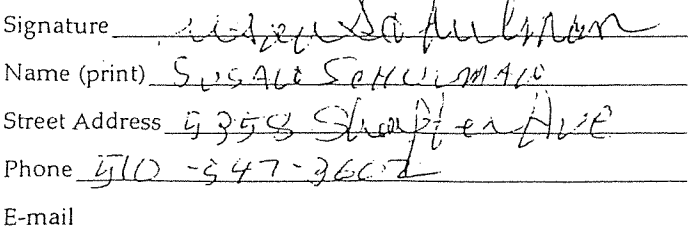 Signature Susan Schulman
Name (print) SUSAN SCHULMAN
Street Address 5358 Shafter Ave
Phone 510-547-3602
E-mail